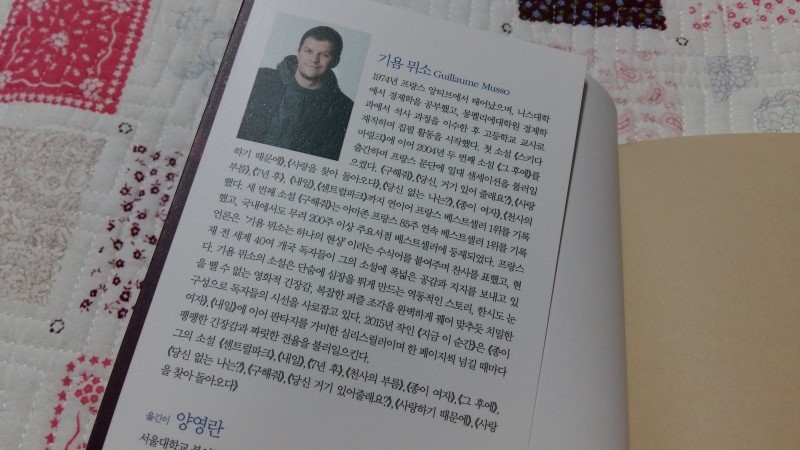 기욤 뮈소 Guillaume Musso
1974년 프랑스 앙티브에서 태어났으며, 니스대학
에서 경제학을 공부했고, 몽펠리에대학원 경제학
과에서 석사 과정을 이수한 후 고등학교 교사로
재직하며 집필 활동을 시작했다. 첫 소설 《스키다
마링크》에 이어 2004년 두 번째 소설 《그 후에》를
출간하며 프랑스 문단에 일대 센세이션을 불러일
으켰다. 《구해줘》, 《당신, 거기 있어 줄래요?》, 《사랑
하기 때문에》, 《사랑을 찾아 돌아오다》, 《당신 없는 나는?》, 《종이 여자》, 《천사의
부름》, 《7년 후》, 《내일》, 《센트럴파크》까지 연이어 프랑스 베스트셀러 1위를 기록
했다. 세 번째 소설 《구해줘》는 아마존 프랑스 85주 연속 베스트셀러 1위를 기록
했고, 국내에서도 무려 200주 이상 주요서점 베스트셀러에 등재되었다. 프랑스
언론은 '기욤 뮈소는 하나의 현상'이라는 수식어를 붙여주며 찬사를 표했고, 현
재 전 세계 40여 개국 독자들이 그의 소설에 폭넓은 공감과 지지를 보내고 있
다. 기욤 뮈소의 소설은 단숨에 심장을 뛰게 만드는 역동적인 스토리, 한시도 눈
을 뗄 수 없는 영화적 긴장감, 복잡한 퍼즐 조각을 완벽하게 꿰어 맞추듯 치밀한
구성으로 독자들의 시선을 사로잡고 있다. 2015년 작인 《지금 이 순간》은 《종이
여자》, 《내일》에 이어 판타지를 가미한 심리스릴러이며 한 페이지씩 넘길 때마다
팽팽한 긴장감과 짜릿한 전율을 불러일으킨다.
그의 소설 《센트럴파크》, 《내일》, 《7년 후》, 《천사의 부름》, 《종이 여자》, 《그 후에》,
《당신 없는 나는?》, 《구해줘》, 《당신 거기 있어줄래요?》, 《사랑하기 때문에》, 《사랑
을 찾아 돌아오다》
옮긴이 양영란
서울대학교